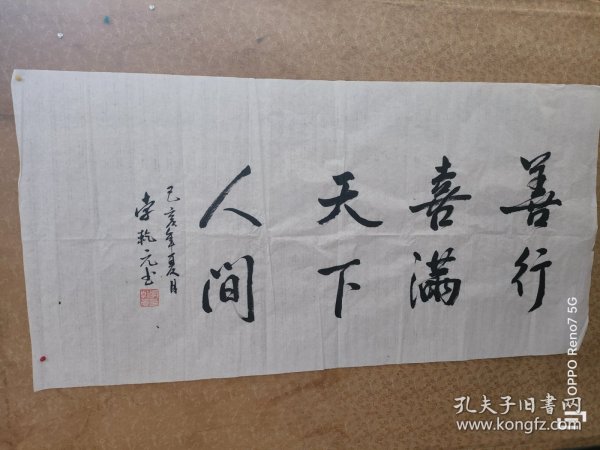 善行
喜满
天下
人间
己亥年夏月
李乾元书
孔夫子旧书网
www.kongfz.com
OPPO Reno7 5G